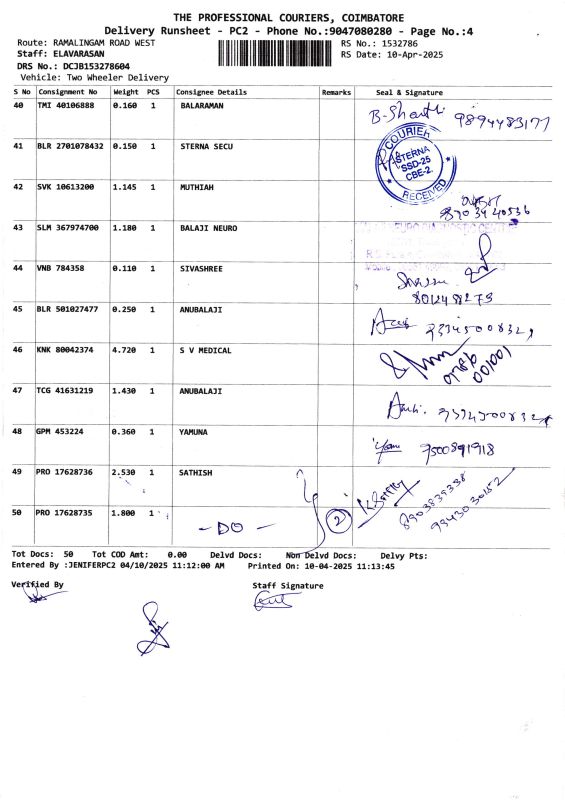 THE PROFESSIONAL COURIERS, COIMBATORE
Delivery Runsheet - PC2 - Phone No.:9047080280 - Page No.:4
Route: RAMALINGAM ROAD WEST RS No.: 1532786
Staff: ELAVARASAN RS Date: 10-Apr-2025
DRS No.: DCJB153278604
Vehicle: Two Wheeler Delivery
S No Consignment No Weight PCS Consignee Details Remarks Seal & Signature
40 TMI 40106888 0.160 1 BALARAMAN 9894483177
41 BLR 2701078432 0.150 1 STERNA SECU
COURIER
STERNA
SSD-25
CBE-2.
RECEIVED
42 SVK 10613200 1.145 1 MUTHIAH
43 SLM 367974700 1.180 1 BALAJI NEURO
44 VNB 784358 0.110 1 SIVASHREE
45 BLR 501027477 0.250 1 ANUBALAJI
46 KNK 80042374 4.720 1 S V MEDICAL
47 TCG 41631219 1.430 1 ANUBALAJI
48 GPM 453224 0.360 1 YAMUNA 7500891918
49 PRO 17628736 2.530 1 SATHISH
50 PRO 17628735 1.800 1 - DO - 2
Tot Docs: 50 Tot COD Amt: 0.00 Delvd Docs: Non Delvd Docs: Delvy Pts:
Entered By :JENIFERPC2 04/10/2025 11:12:00 AM Printed On: 10-04-2025 11:13:45
Verified By Staff Signature